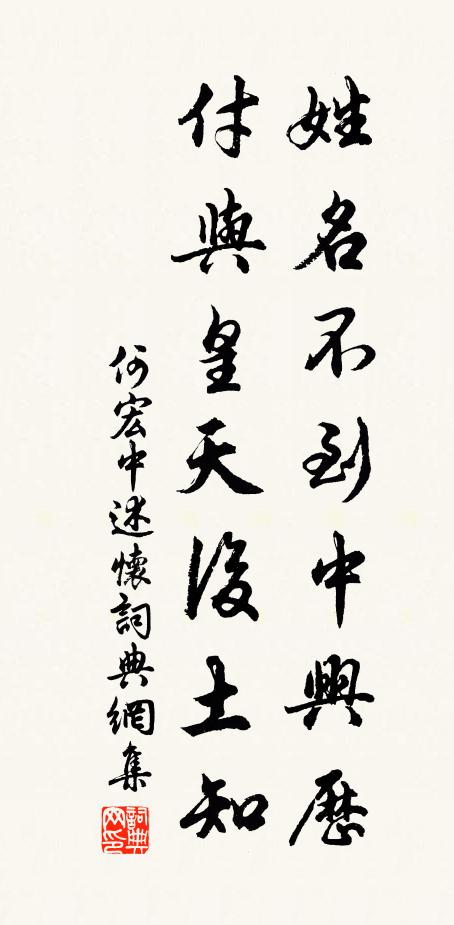 姓名不到中興歷
付與皇天後土知
何宏中述懷詞典網集
詞典网印